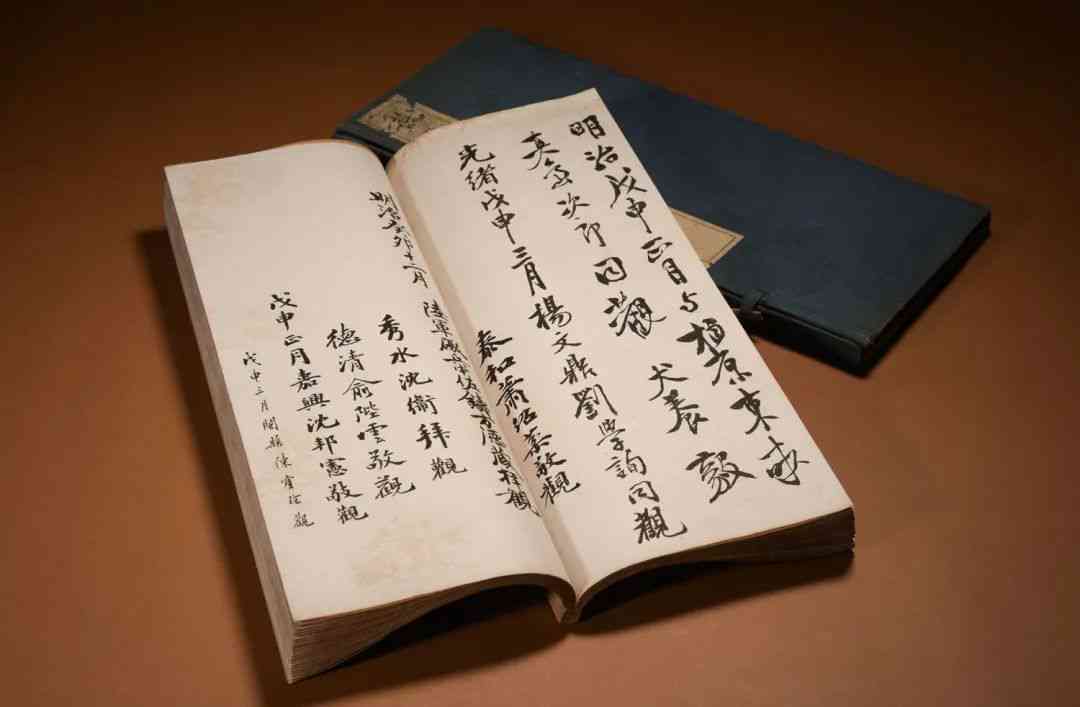 明治戊申正月与柏原東畝
次郎同觀 犬養毅
光緒戊申三月楊文鼎劉學詢同觀
泰和蕭紹敬觀
明治卯十二月 陸軍拜觀
秀水沈衞拜觀
德清俞陛雲敬觀
戊申正月嘉興沈邦憲敬觀
戊申三月閩縣陳寶琛觀